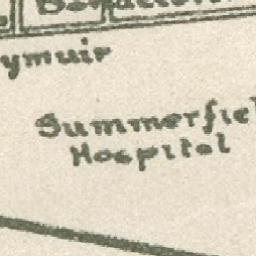 ymuir
Summerfiel
Hospital